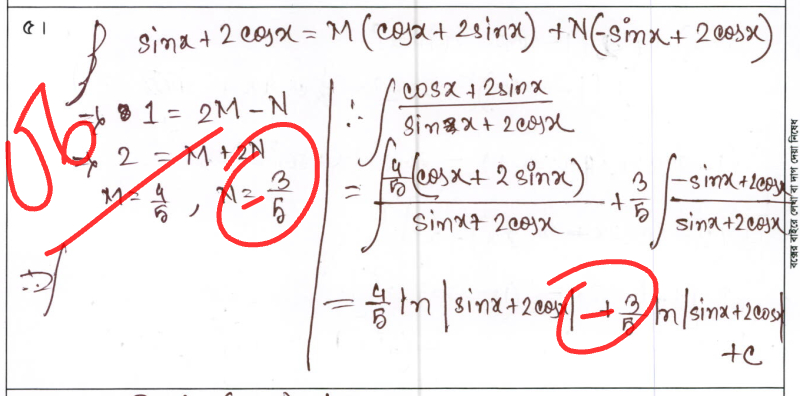 ৫।
sinx + 2cosx = M(cosx + 2sinx) + N(-sinx + 2cosx)
→ 1 = 2M - N
→ 2 = M + 2N
M = 4/5 , N = - 3/5
⇒
∴ ∫ (cosx + 2sinx)/(sinx + 2cosx)
= ∫ 4/5 (cosx + 2sinx)/(sinx + 2cosx) + 3/5 ∫ (-sinx + 2cosx)/(sinx + 2cosx)
= 4/5 ln |sinx + 2cosx| + 3/5 ln |sinx + 2cosx|
+ c
বক্সের বাইরে লেখা বা দাগ দেয়া নিষেধ